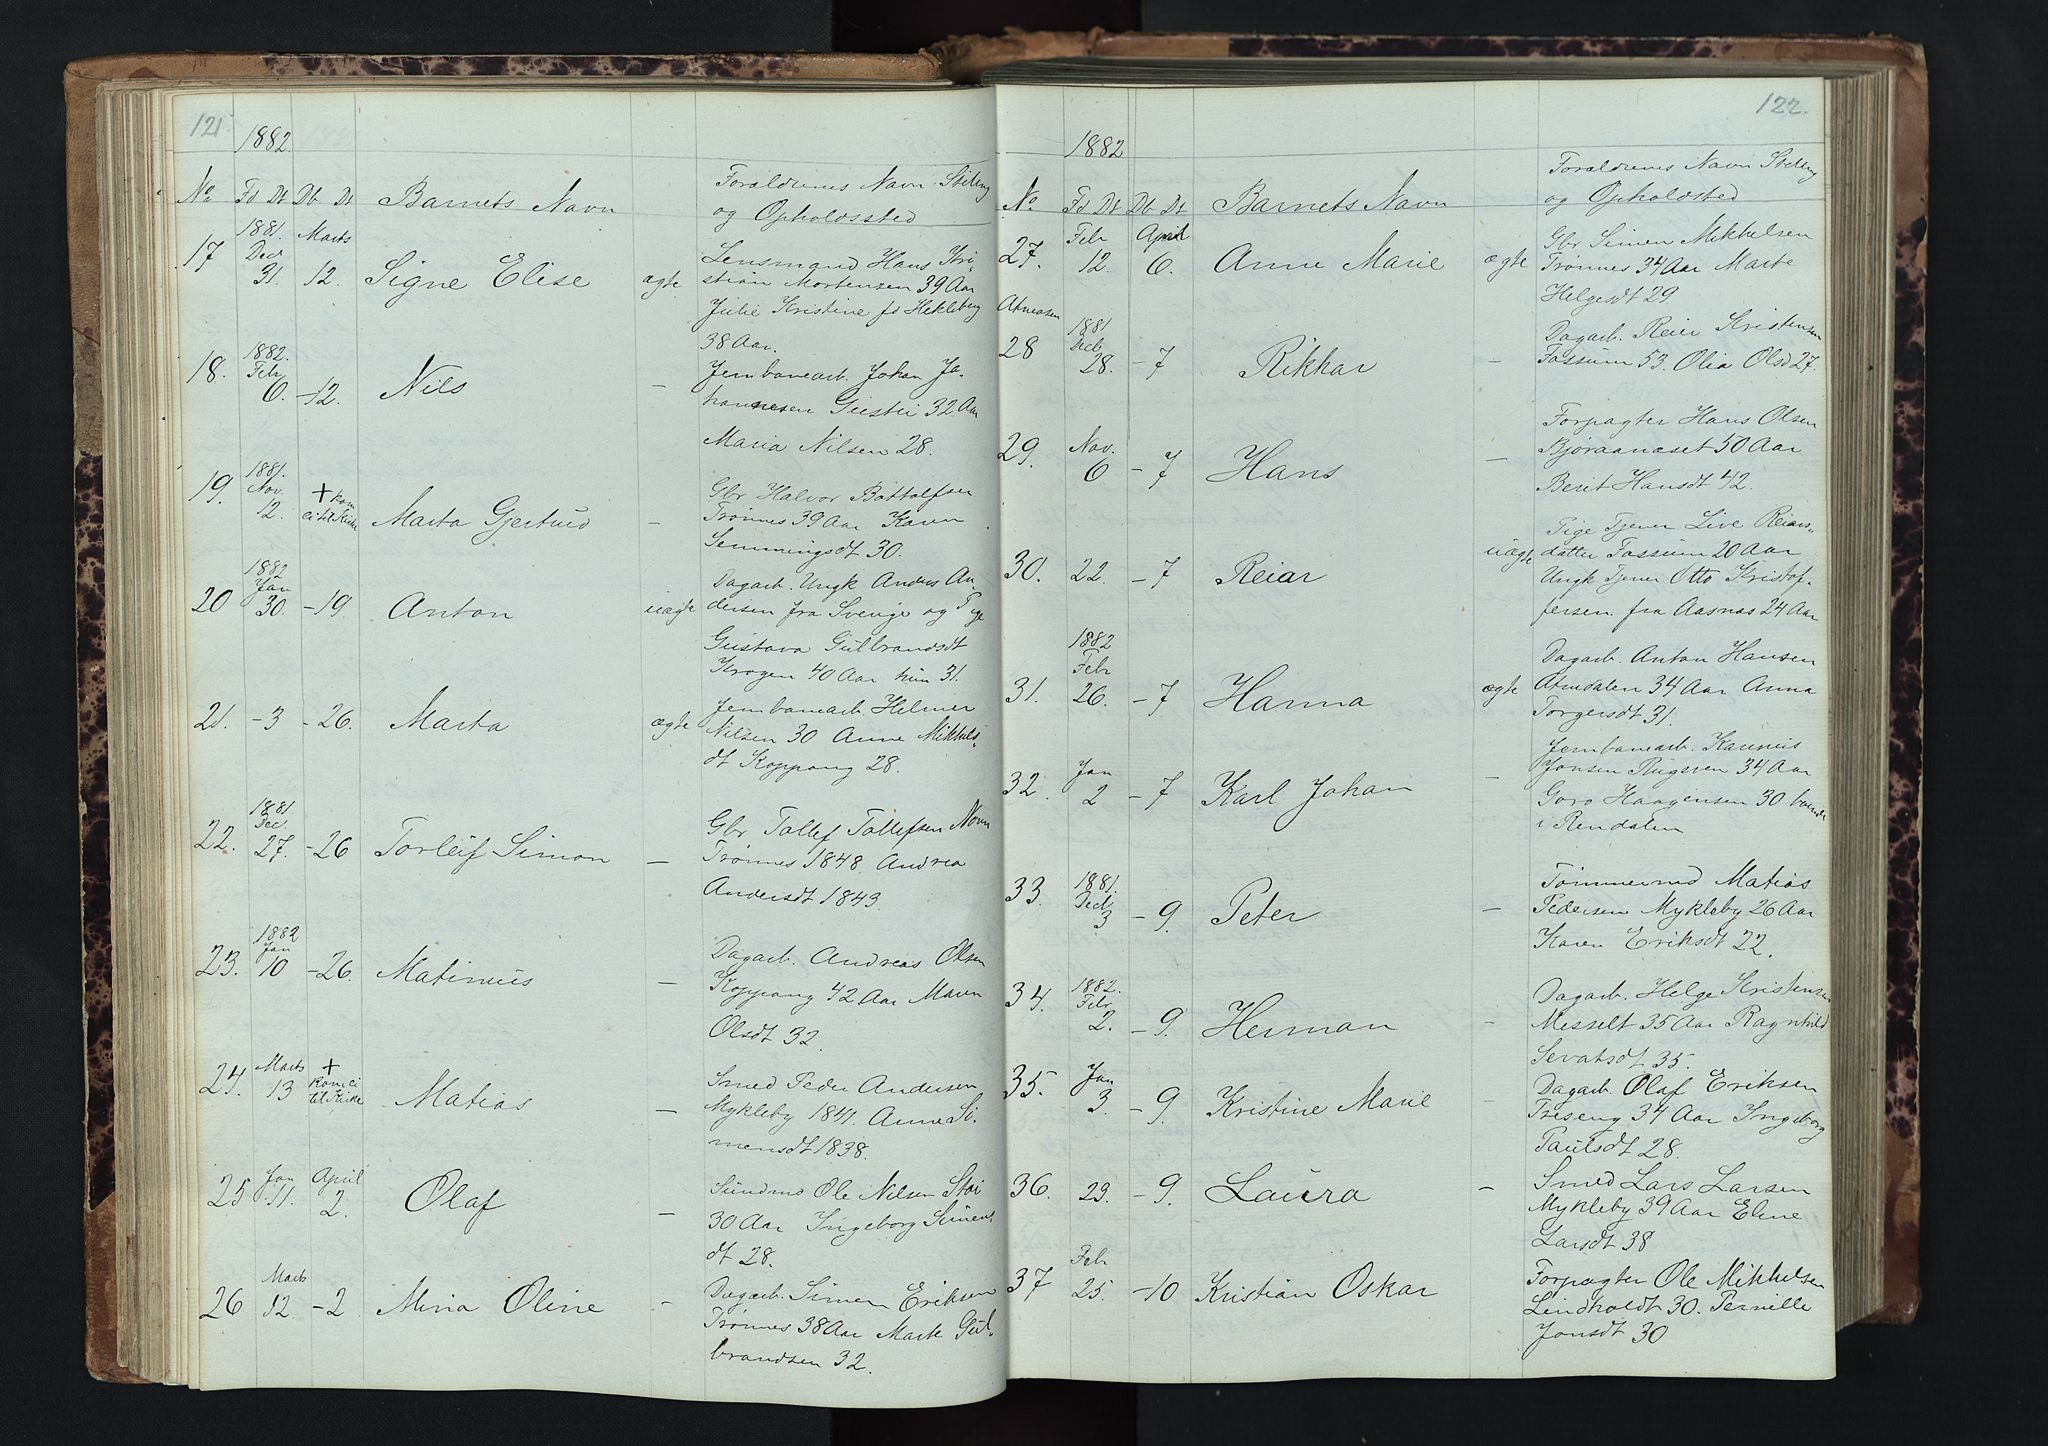 121.
1882.
No Fd Dt Db Dt Barnets Navn Forældrenes Navn Stilling
og Opholdssted
17 1881. Decr 31. Marts 12. Signe Elise ægte Lensmand Hans Kri-
stian Mortensen 39 Aar
Julie Kristine fd Hekleberg
38 Aar.
18. 1882. Febr 6. -12. Nils — Jernbanearb. Johan Jo-
hannesen Gustei 32 Aar
Maria Nilsen 28.
19. 1881. Nov. 12. + kom
ei til Kirke Marta Gjertrud — Gbr Halvor Bottolfsen
Trønnes 39 Aar Karen
Semmingsdt 30.
20 1882 Jan 30. -19. Anton uægte Dagarb. Ungk Anders An-
dersen fra Sverige og Pige
Gustava Gulbrandsdt
Krogen 40 Aar hun 31.
21. -3 -26. Marta ægte Jernbanearb. Helmer
Nilsen 30 Anne Mikkels-
dt Koppang 28.
22. 1881. Dec. 27. -26 Torleif Simon — Gbr Tollef Tollefsen Novn
Trønnes 1848. Andrea
Andersdt 1843.
23. 1882 Jan 10 -26. Matinius — Dagarb. Andreas Olsen
Koppang 42 Aar Maren
Olsdt 32.
24. Marts 13 +
kom ei
til Kirke Matias — Smed Peder Andersen
Mykleby 1841. Anne Si-
mensdt 1838.
25 Jan 11. April 2. Olaf — Sundmd Ole Nilsen Stai
30 Aar Ingeborg Simens
dt 28.
26 Marts 12. -2 Mina Oline — Dagarb. Simen Eriksen
Trønnes 38 Aar Marte Gul-
brandsen 32.
122.
1882
No Fd Dt Db Dt Barnets Navn Forældrenes Navn Stilling
og Opholdsted
27. Febr 12. April 6. Anne Marie ægte Gbr Simen Mikkelsen
Trønnes 34 Aar Marte
Helgesdt 29
Atneosen
28 1881 Decb 28. -7 Rikkar — Dagarb. Reier Kristensen
Fossum 53. Olia Olsd 27.
29. Nov. 6 -7 Hans — Forpagter Hans Olsen
Bjøraanæset 50 Aar
Berit Hansdt 42.
30. 22. -7 Reiar uægte Pige Tjener Live Reiars-
datter Fossum 20 Aar
Ungk Tjener Otto Kristof-
fersen fra Aasnas 24 Aar
31. 1882 Febr 26. -7 Hanna ægte Dagarb. Anton Hansen
Atnedalen 34 Aar Anna
Torgersdt 31.
32. Jan 2 -7 Karl Johan — Jernbanearb. Karinius
Jonsen Rugsven 34 Aar
Goro Haagensen 30 boende
i Rendalen
33. 1881. Decb 3 -9. Peter — Tømmermd Matias
Pedersen Mykleby 26 Aar
Karen Eriksdt 22.
34. 1882. Febr 2. -9. Herman — Dagarb. Helge Kristensen
Messelt 35 Aar Ragnhild
Sevatsdt 35.
35. Jan 3 -9. Kristine Marie — Dagarb. Olaf Eriksen
Treseng 34 Aar Ingeborg
Paulsdt 28.
36. 23. -9. Laura — Smed Lars Larsen
Mykleby 39 Aar Eline
Larsdt 38
37 Febr 25. -10 Kristian Oskar Forpagter Ole Mikkelsen
Lindholdt 30. Pernille
Jonsdt 30